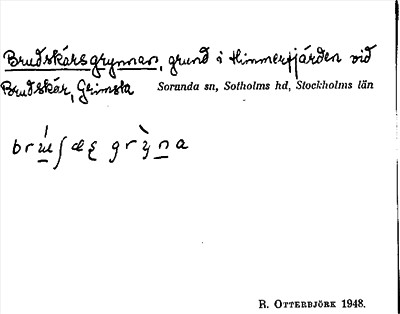 Brudskärsgrynnan, grund i Himmerfjärden vid
Brudskär, Grimsta Sorunda sn, Sotholms hd, Stockholms län
R. Otterbjörk 1948.